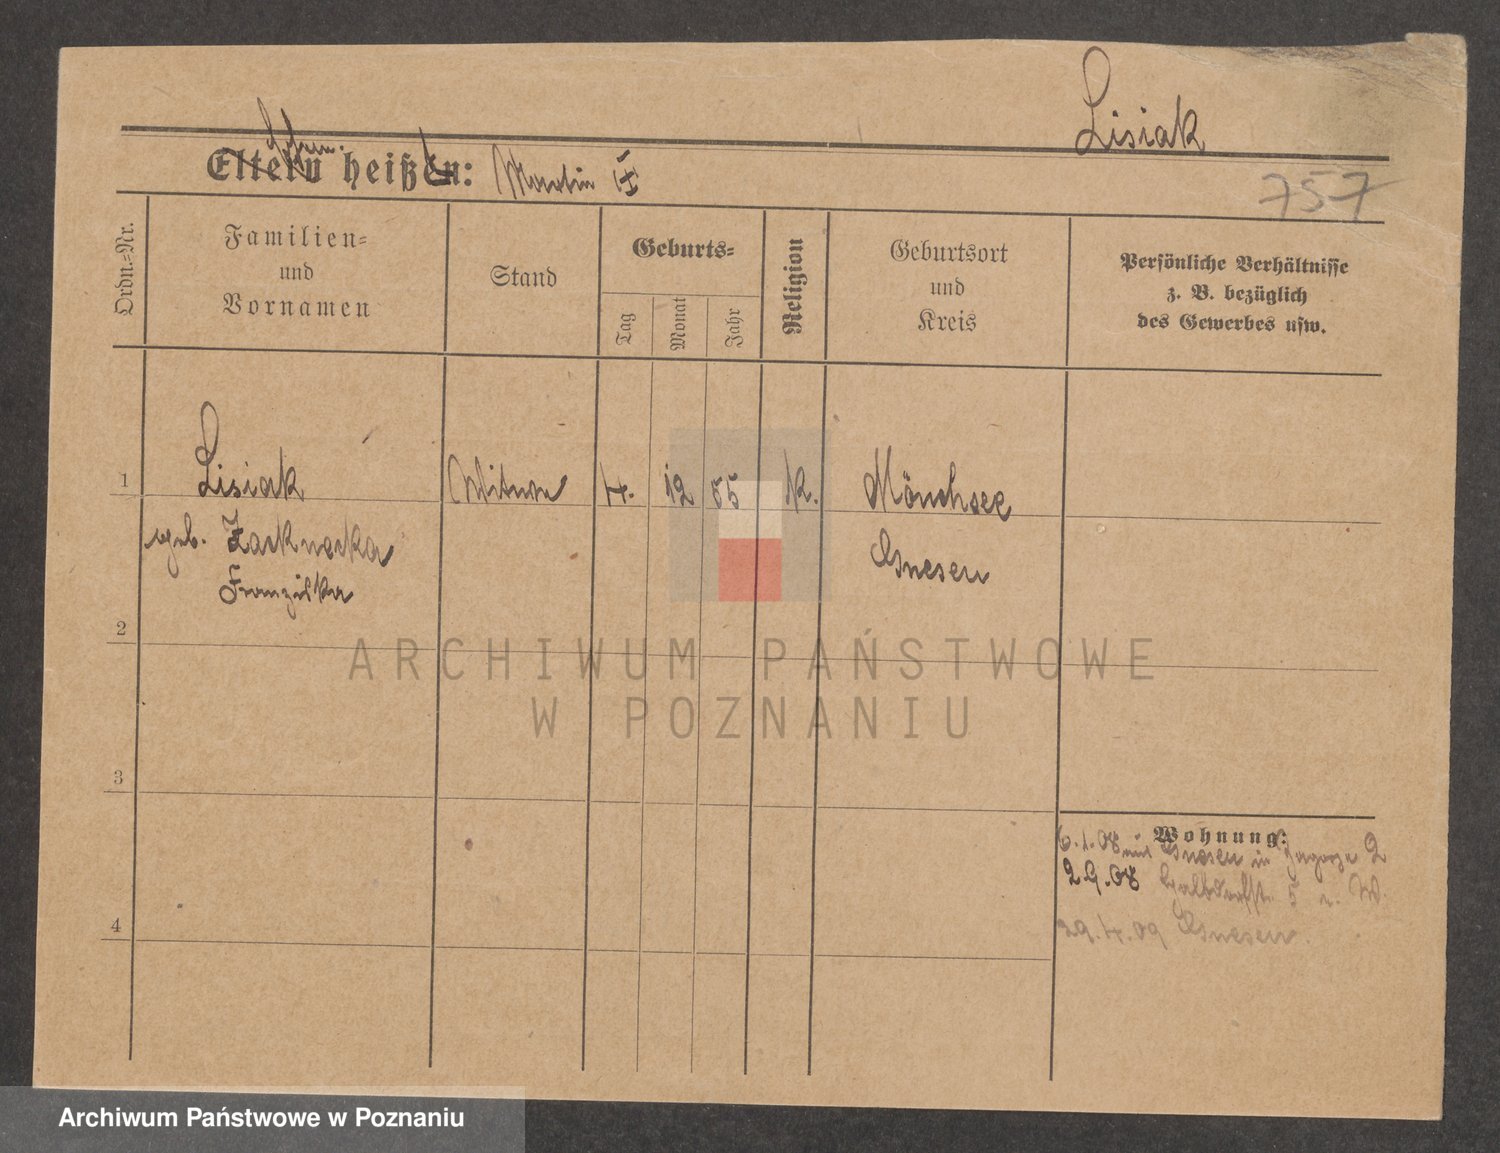 Lisiak
Eltern heißen: Martin
757
Ordn.-Nr.
Familien-
und
Vornamen
Stand
Geburts-
Tag
Monat
Jahr
Religion
Geburtsort
und
Kreis
Persönliche Verhältnisse
z. B. bezüglich
des Gewerbes usw.
1 Lisiak Witwe 4. 12 55 k. Mönchsee
geb.
Gnesen
Franziska
2
3
Wohnung:
6.1.08 aus Gnesen in 2
2.9.08 5
4
29.4.09 Gnesen.
ARCHIWUM PAŃSTWOWE
W POZNANIU
Archiwum Państwowe w Poznaniu